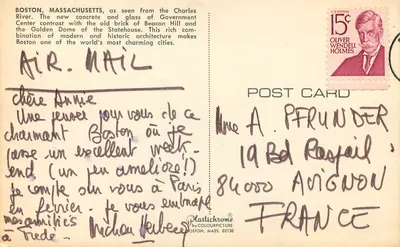 BOSTON, MASSACHUSETTS, as seen from the Charles
River. The new concrete and glass of Government
Center contrast with the old brick of Beacon Hill and
the Golden Dome of the Statehouse. This rich com-
bination of modern and historic architecture makes
Boston one of the world's most charming cities.
AIR. MAIL
Chère Annie
Une pensée pour vous de ce
charmant Boston où je
passe un excellent week-
end (un peu amélioré!)
je compte sur vous à Paris
en février. je vous embrasse
mes amitiés
à Dede.
15¢
OLIVER
WENDELL
HOLMES
POST CARD
Mme A. PFRUNDER
19 Bd Raspail
84000 AVIGNON
FRANCE
Plastichrome
BY COLOURPICTURE
BOSTON, MASS. 02130